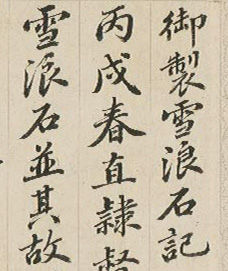 御製雪浪石記
丙戌春直隷督
雪浪石並其故